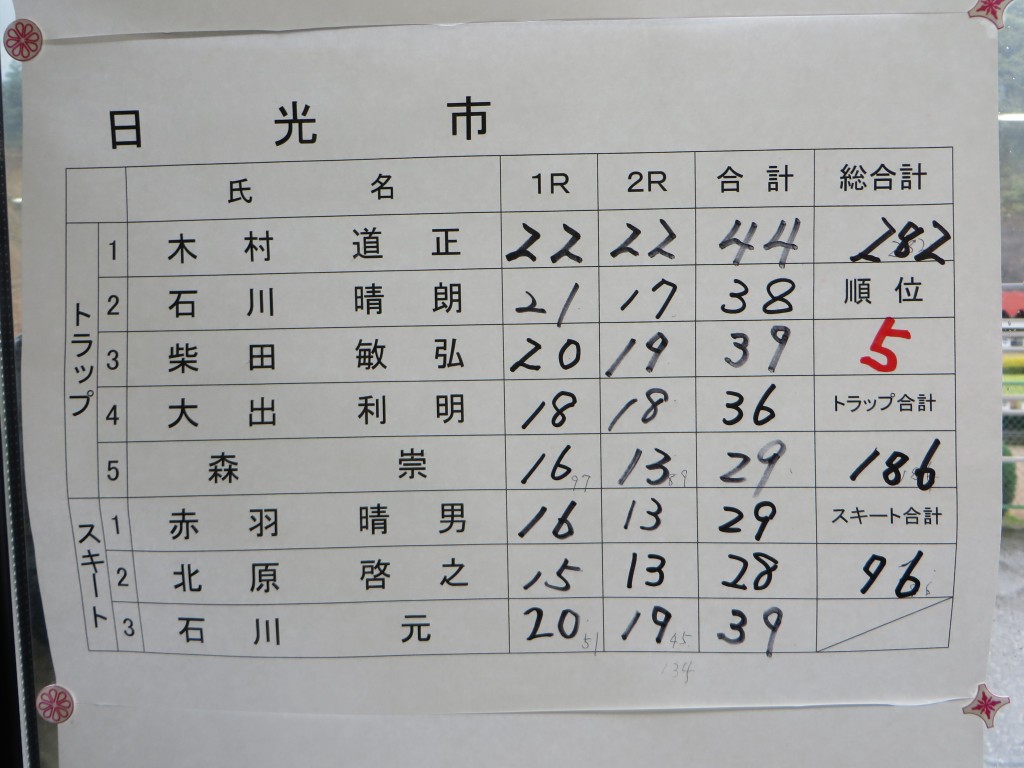 日光市
氏名 1R 2R 合計 総合計
トラップ
1 木村道正 22 22 44 282
2 石川晴朗 21 17 38 順位
3 柴田敏弘 20 19 39 5
4 大出利明 18 18 36 トラップ合計
5 森崇 16 97 13 89 29 186
スキート
1 赤羽晴男 16 13 29 スキート合計
2 北原啓之 15 13 28 96
3 石川元 20 51 19 45 39
134